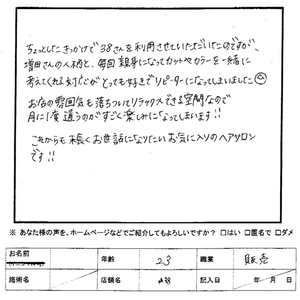 ちょっとしたきっかけで38さんを利用させていただいたのですが、
増田さんの人柄と、毎回親身になってカットやカラーを一緒に
考えてくれる対応がとっても好きでリピーターになってしまいました
お店の雰囲気も落ちついてリラックスできる空間なので
月に1度通うのがすごく楽しみになってしまいます!!
これからも末長くお世話になりたいお気に入りのヘアサロン
です!!
※ あなた様の声を、ホームページなどでご紹介してもよろしいですか? □はい □匿名で □ダメ
お名前 年齢 23 職業 販売
施術名 店舗名 38 記入日 年 月 日